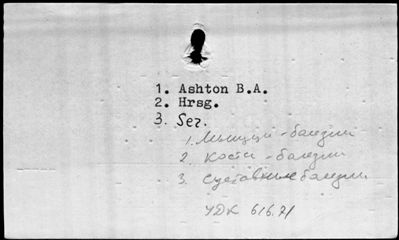 1. Ashton B.A.
2. Hrsg.
3. Ser.
1. Мышцы - болезни
2. Кости - болезни
3. Суставные болезни
УДК 616.71